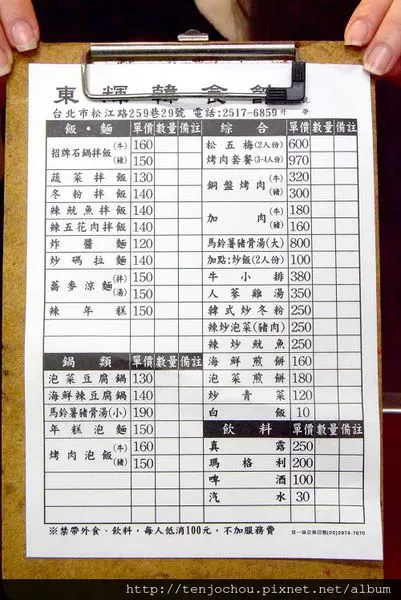 東輝韓食館
台北市松江路259巷29號 電話:2517-6859
飯・麵 單價 數量 備註
招牌石鍋拌飯 (牛) 160
(豬) 150
蔬菜拌飯 130
冬粉拌飯 140
辣魷魚拌飯 140
辣五花肉拌飯 140
炸醬麵 120
炒碼拉麵 140
蕎麥涼麵 (拌) 150
(湯) 150
辣年糕 150
鍋類 單價 數量 備註
泡菜豆腐鍋 130
海鮮辣豆腐鍋 140
馬鈴薯豬骨湯(小) 190
年糕泡麵 150
烤肉泡飯 (牛) 160
(豬) 150
綜合 單價 數量 備註
松五梅(2人份) 600
烤肉套餐(3-4人份) 970
銅盤烤肉 (牛) 320
(豬) 300
加肉 (牛) 180
(豬) 160
馬鈴薯豬骨湯(大) 800
加點:炒飯(2人份) 100
牛小排 380
人蔘雞湯 350
韓式炒冬粉 250
辣炒泡菜(豬肉) 250
辣炒魷魚 250
海鮮煎餅 160
泡菜煎餅 180
炒青菜 120
白飯 10
飲料 單價 數量 備註
真露 250
瑪格利 200
啤酒 100
汽水 30
※禁帶外食、飲料,每人低消100元,不加服務費
(02)2974-7670
http://tenjochou.pixnet.net/album